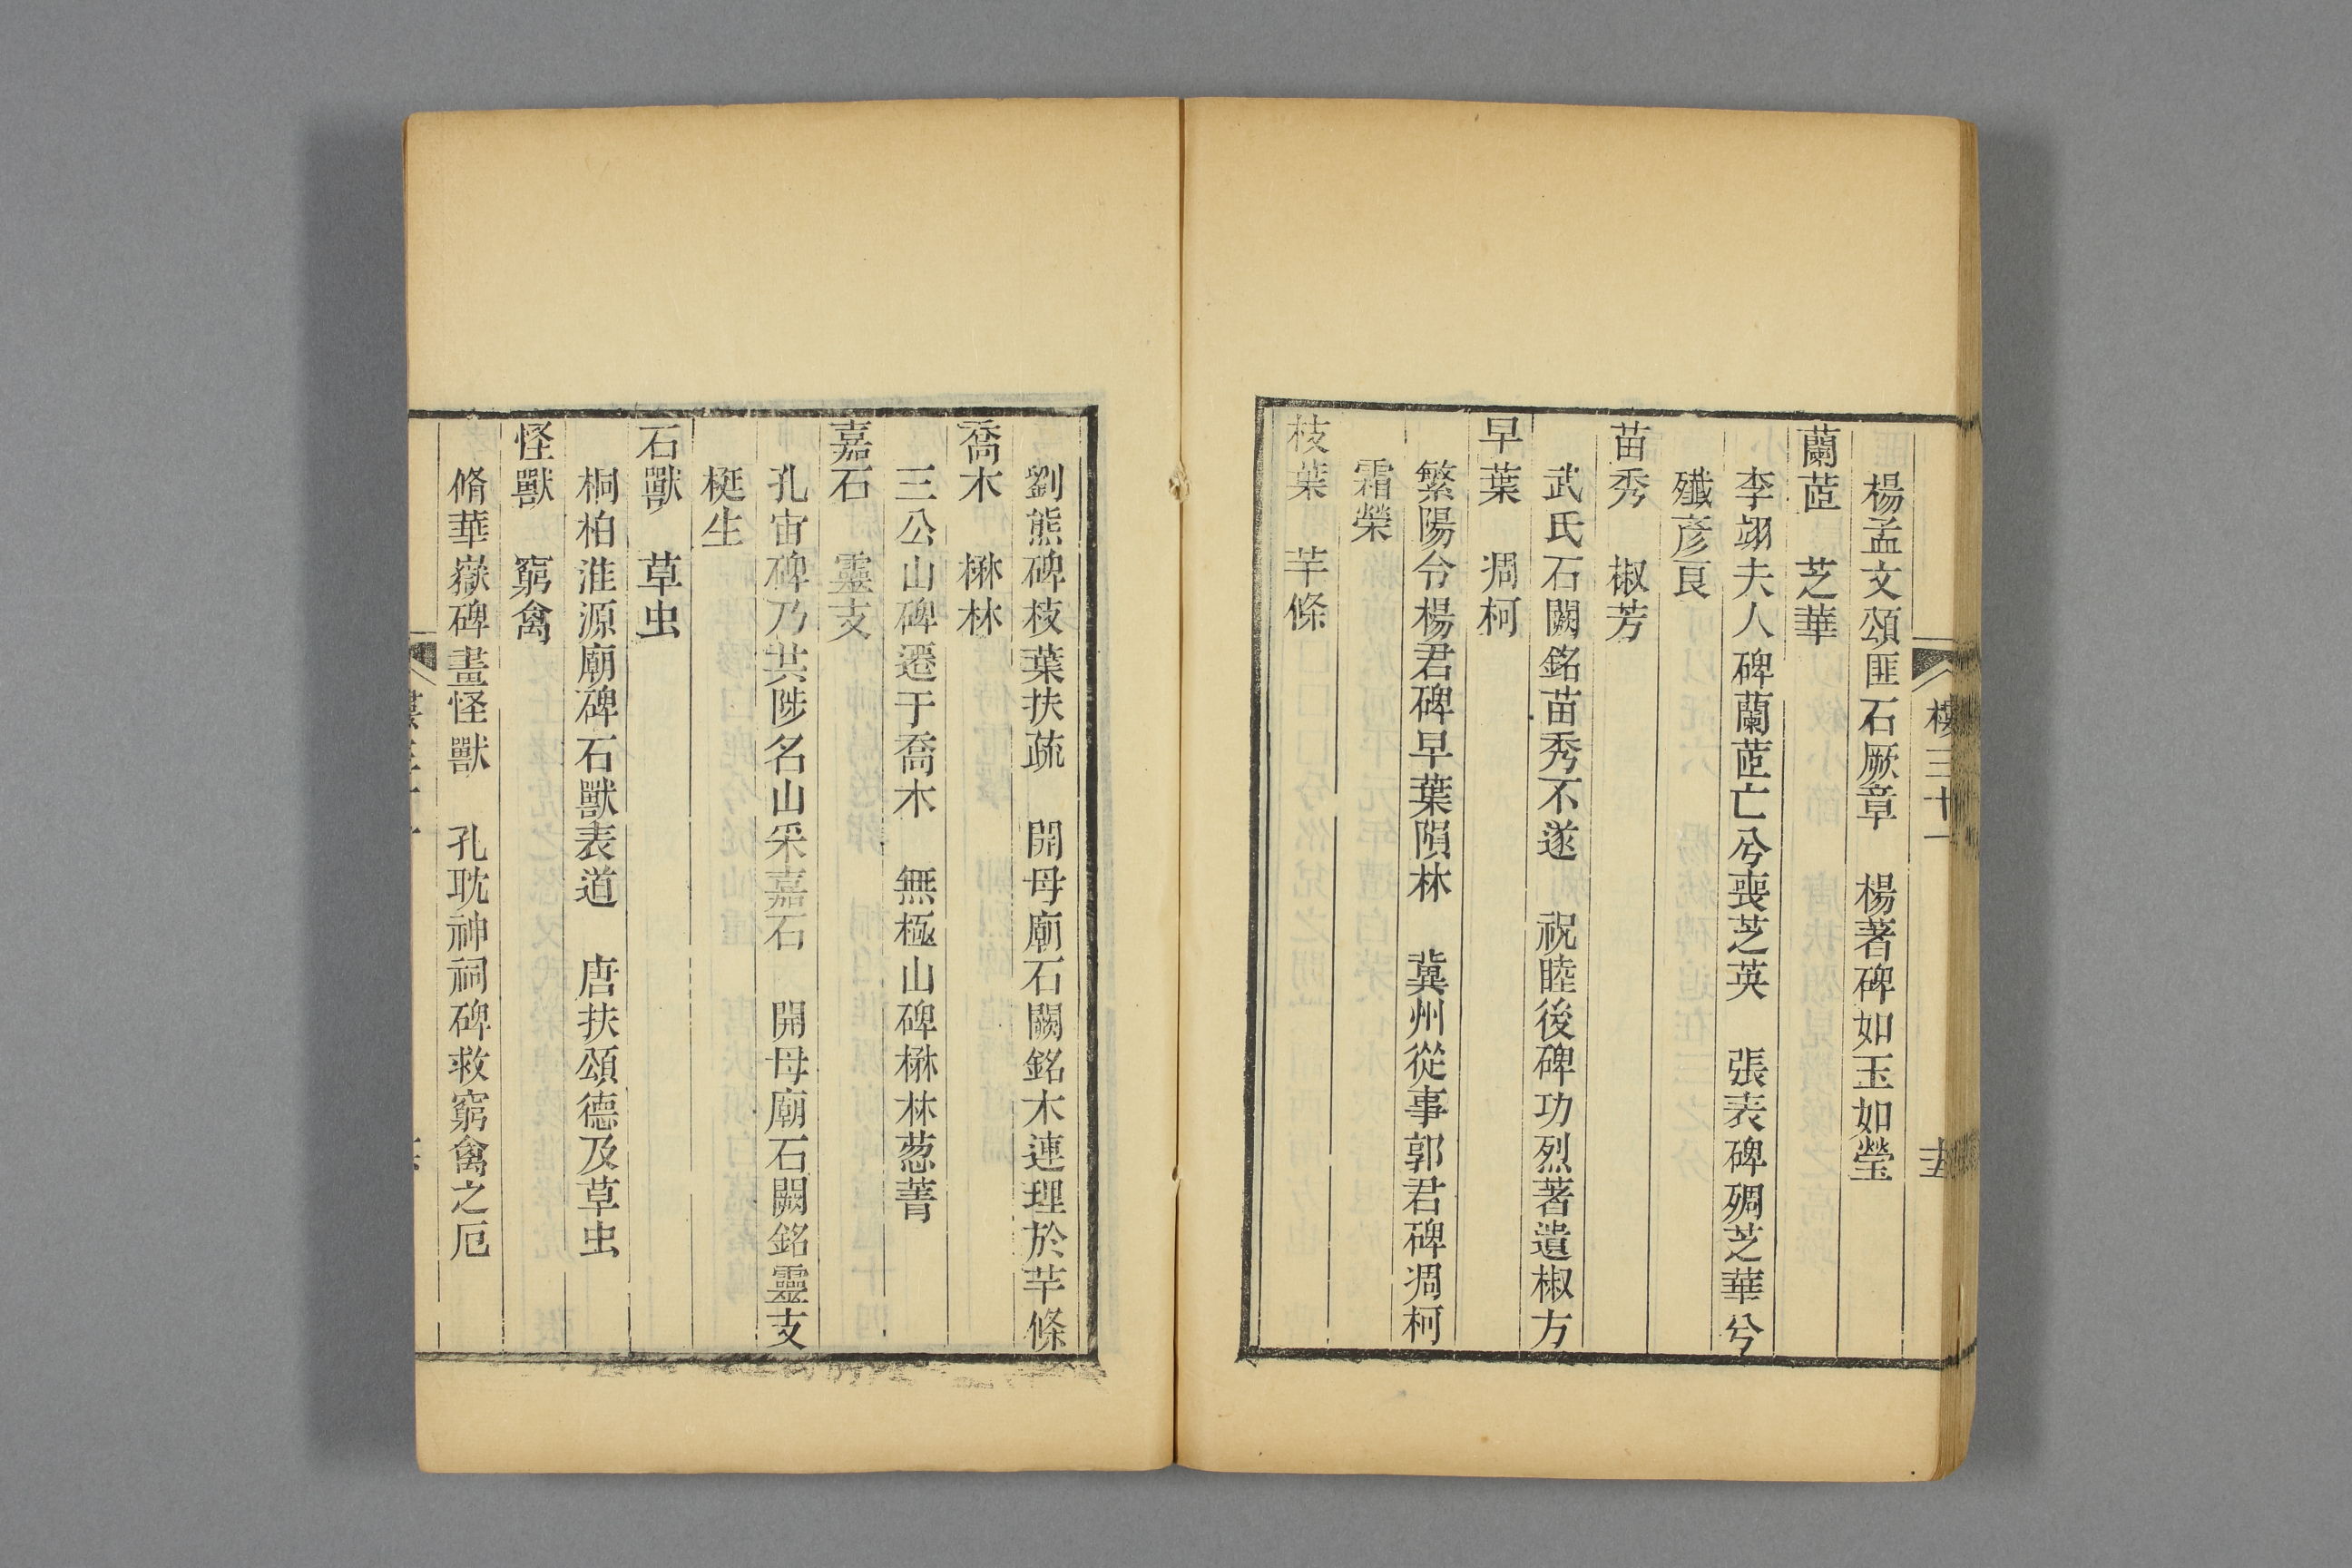 樓三十一
十五
楊孟文頌匪石厥章　楊著碑如玉如瑩
蘭茝　芝華
李翊夫人碑蘭茝亡兮喪芝英　張表碑殦芝華兮
殲彥良
苗秀　椒芳
武氏石闕銘苗秀不遂　祝睦後碑功烈著遺椒方
早葉　凋柯
繁陽令楊君碑早葉隕林　冀州從事郭君碑凋柯
霜榮
枝葉　芊條
劉熊碑枝葉扶疏　開母廟石闕銘木連理於芊條
喬木　楙林
三公山碑遷于喬木　無極山碑楙林葱菁
嘉石　靈支
孔宙碑乃共陟名山采嘉石　開母廟石闕銘靈支
梃生
石獸　草虫
桐柏淮源廟碑石獸表道　唐扶頌德及草虫
怪獸　窮禽
脩華嶽碑畫怪獸　孔耽神祠碑救窮禽之厄